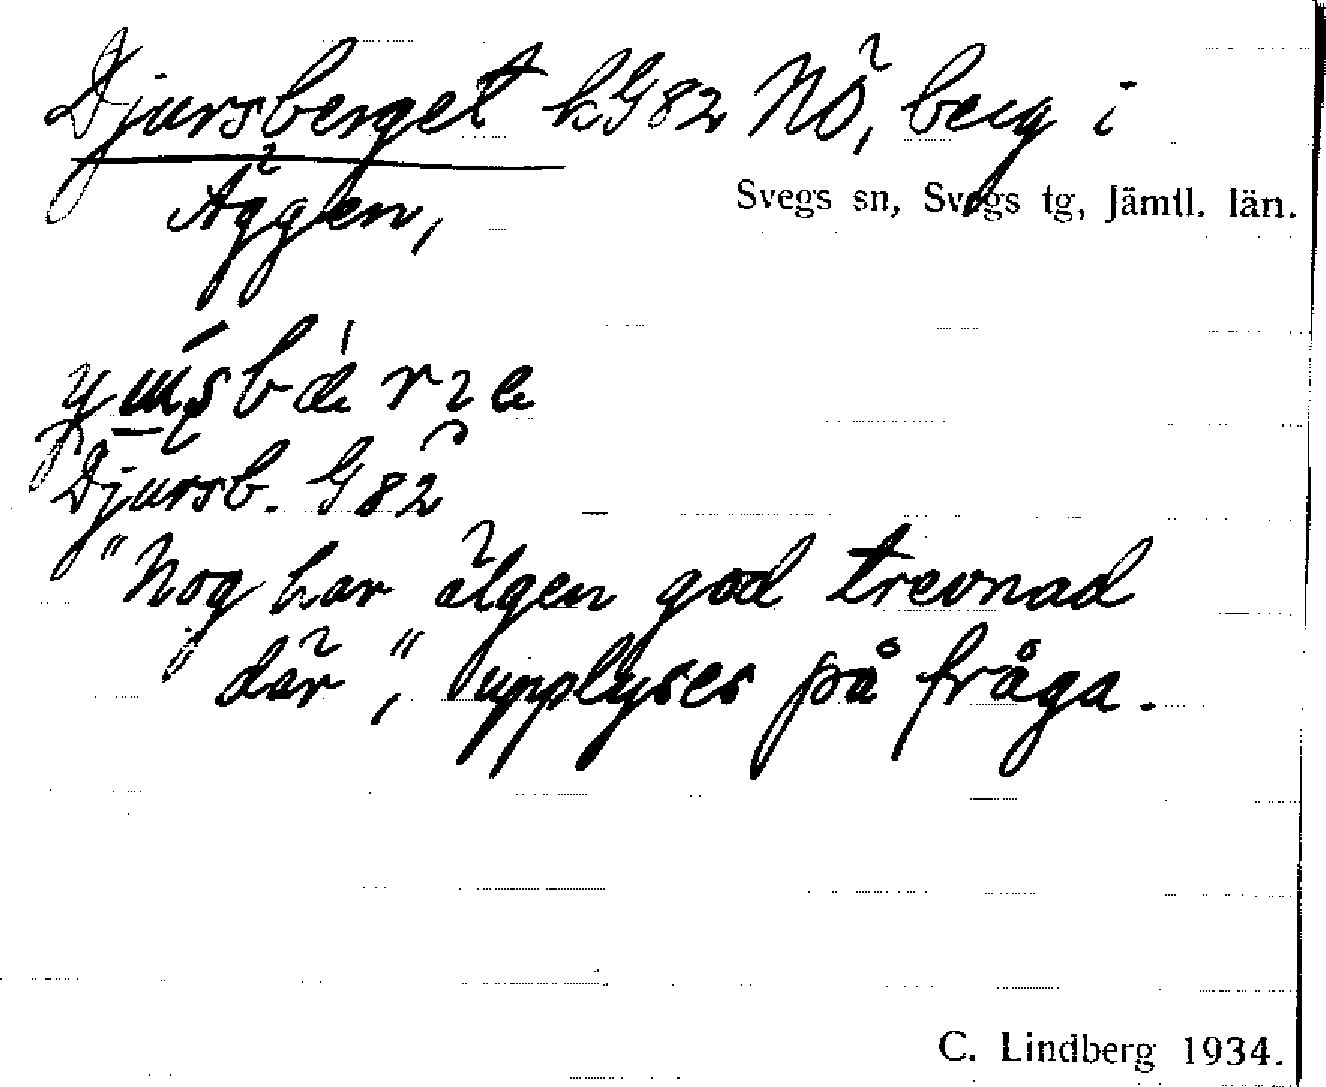 Djursberget kG82 NÖ, berg i
Äggen,
Svegs sn, Svegs tg, Jämtl. län.
Djursb. G82
"Nog har älgen god trevnad
där", upplyses på fråga.
C. Lindberg 1934.